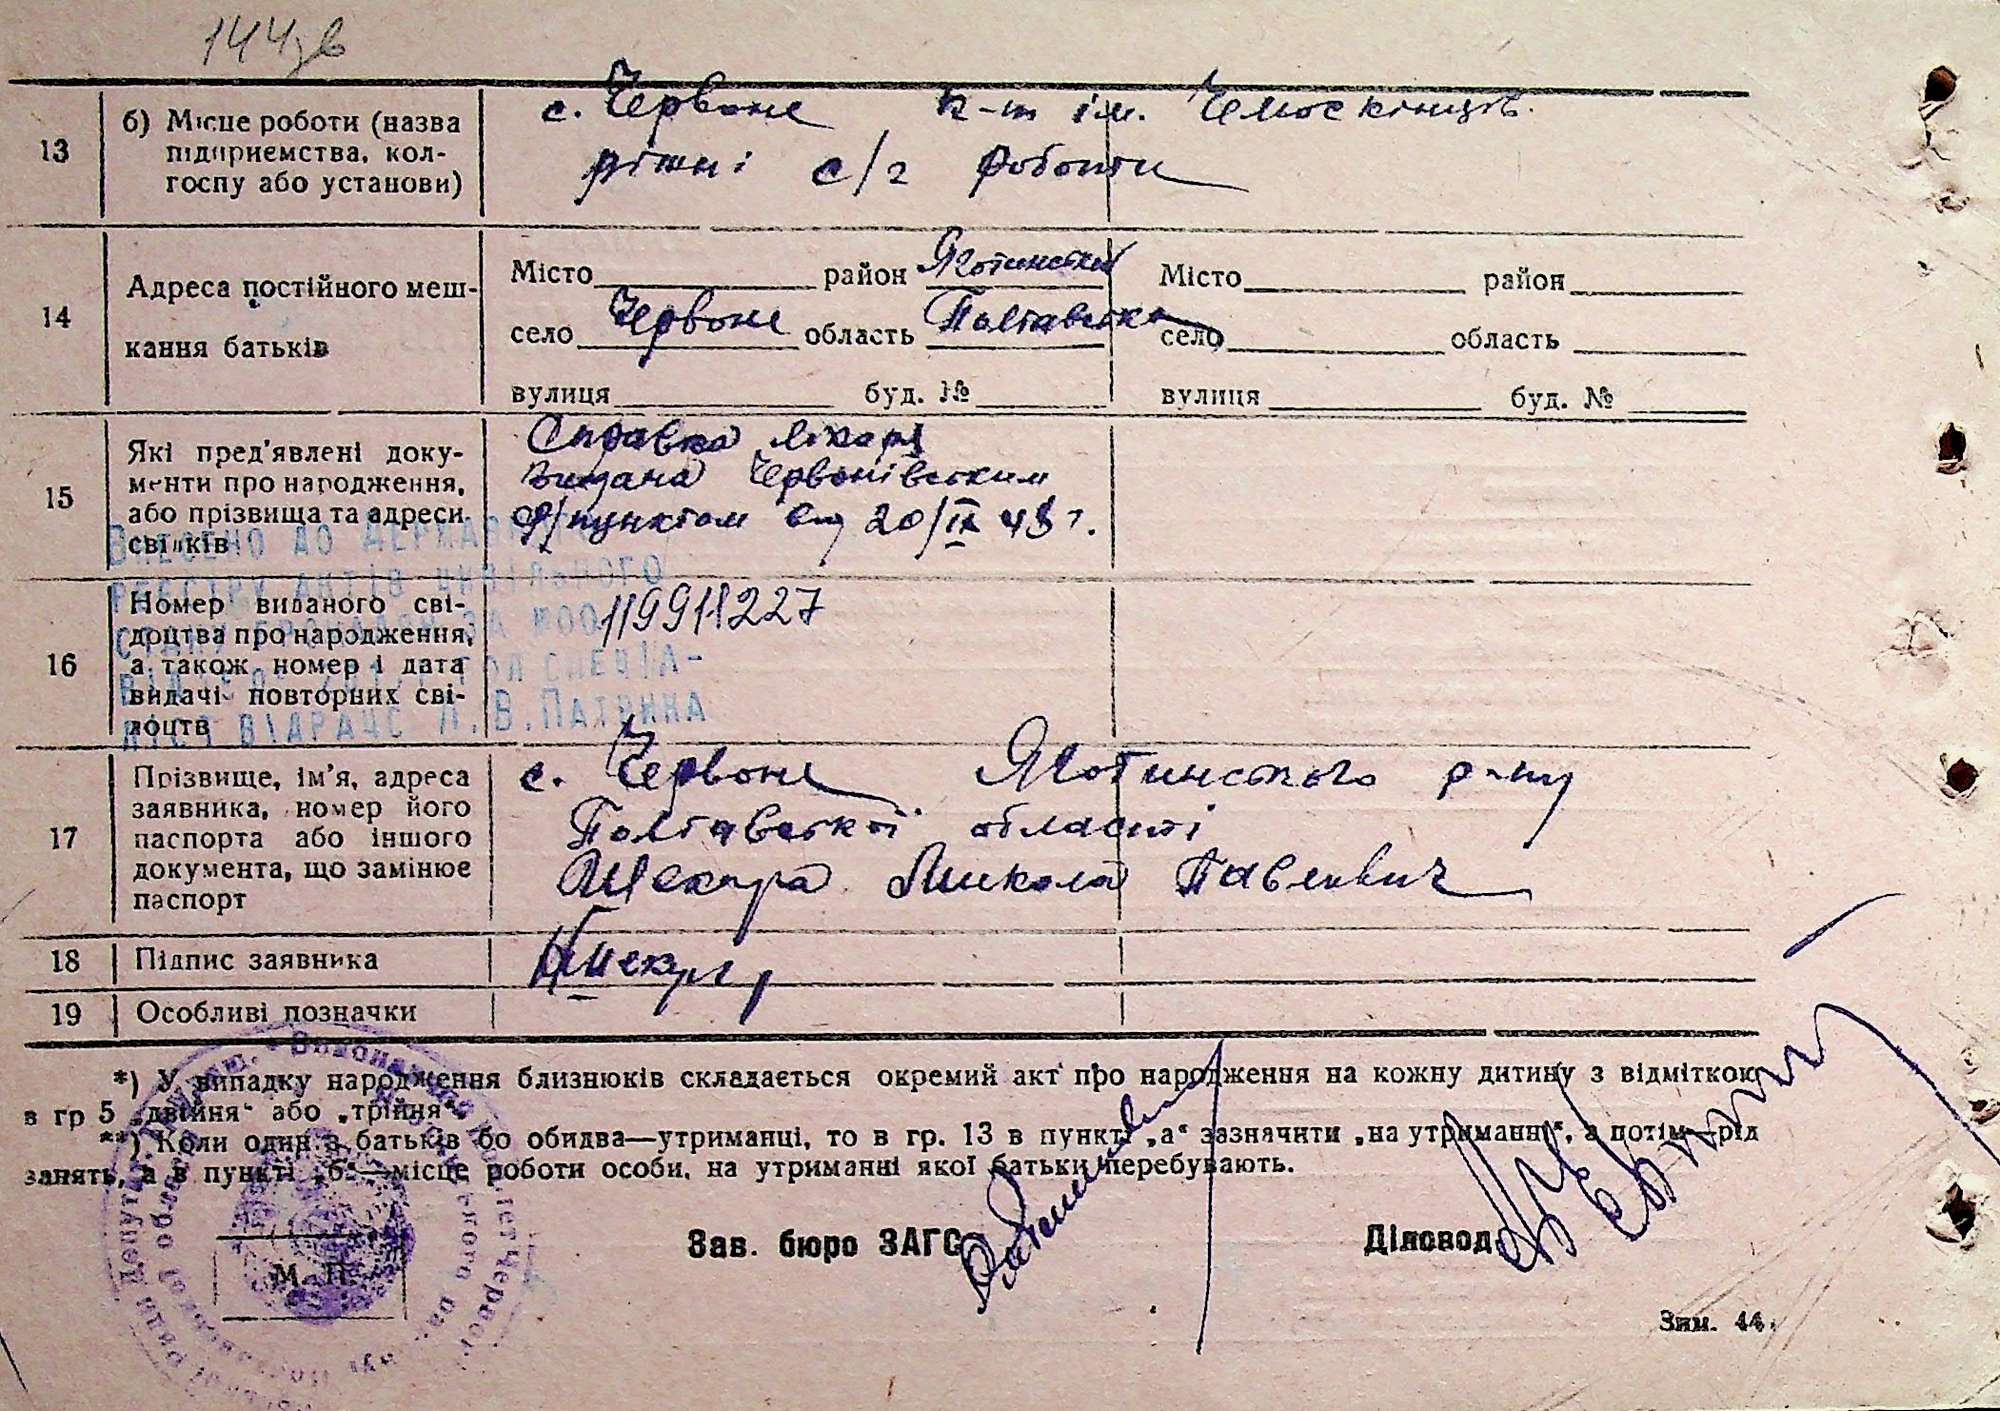 144зв
13
б) Місце роботи (назва
підприємства, кол-
госпу або установи)
с. Червоне к-т ім. Чемоскінців.
ріжні с/г роботи
14
Адреса постійного меш-
кання батьків
Місто район Яготинський
село Червоне область Полтавська
вулиця буд. №
Місто район
село область
вулиця буд. №
15
Які пред'явлені доку-
менти про народження,
або прізвища та адреси
свідків
Справка лікаря
видана Червонівським
ф/пунктом від 20/IX 48 г.
16
Номер виданого сві-
доцтва про народження,
а також номер і дата
видачі повторних сві-
доцтв
11991227
Внесено до Державного
реєстру актів цивільного
стану громадян за №00
спеціа-
ліст ВІДРАЦС Л.В.Патрина
17
Прізвище, ім'я, адреса
заявника, номер його
паспорта або іншого
документа, що замінює
паспорт
с. Червоне Яготинського р-ну
Полтавської області
Шекура Микола Павлович
18
Підпис заявника
Шекура
19
Особливі позначки
*) У випадку народження близнюків складається окремий акт про народження на кожну дитину з відміткою
в гр 5 „двійня“ або „трійня“.
**) Коли один з батьків бо обидва—утриманці, то в гр. 13 в пункті „а“ зазначити „на утриманні“, а потім—рід
занять, а в пункті „б“—місце роботи особи, на утриманні якої батьки перебувають.
М. П.
Зав. бюро ЗАГС
Діловод
Зим. 44.